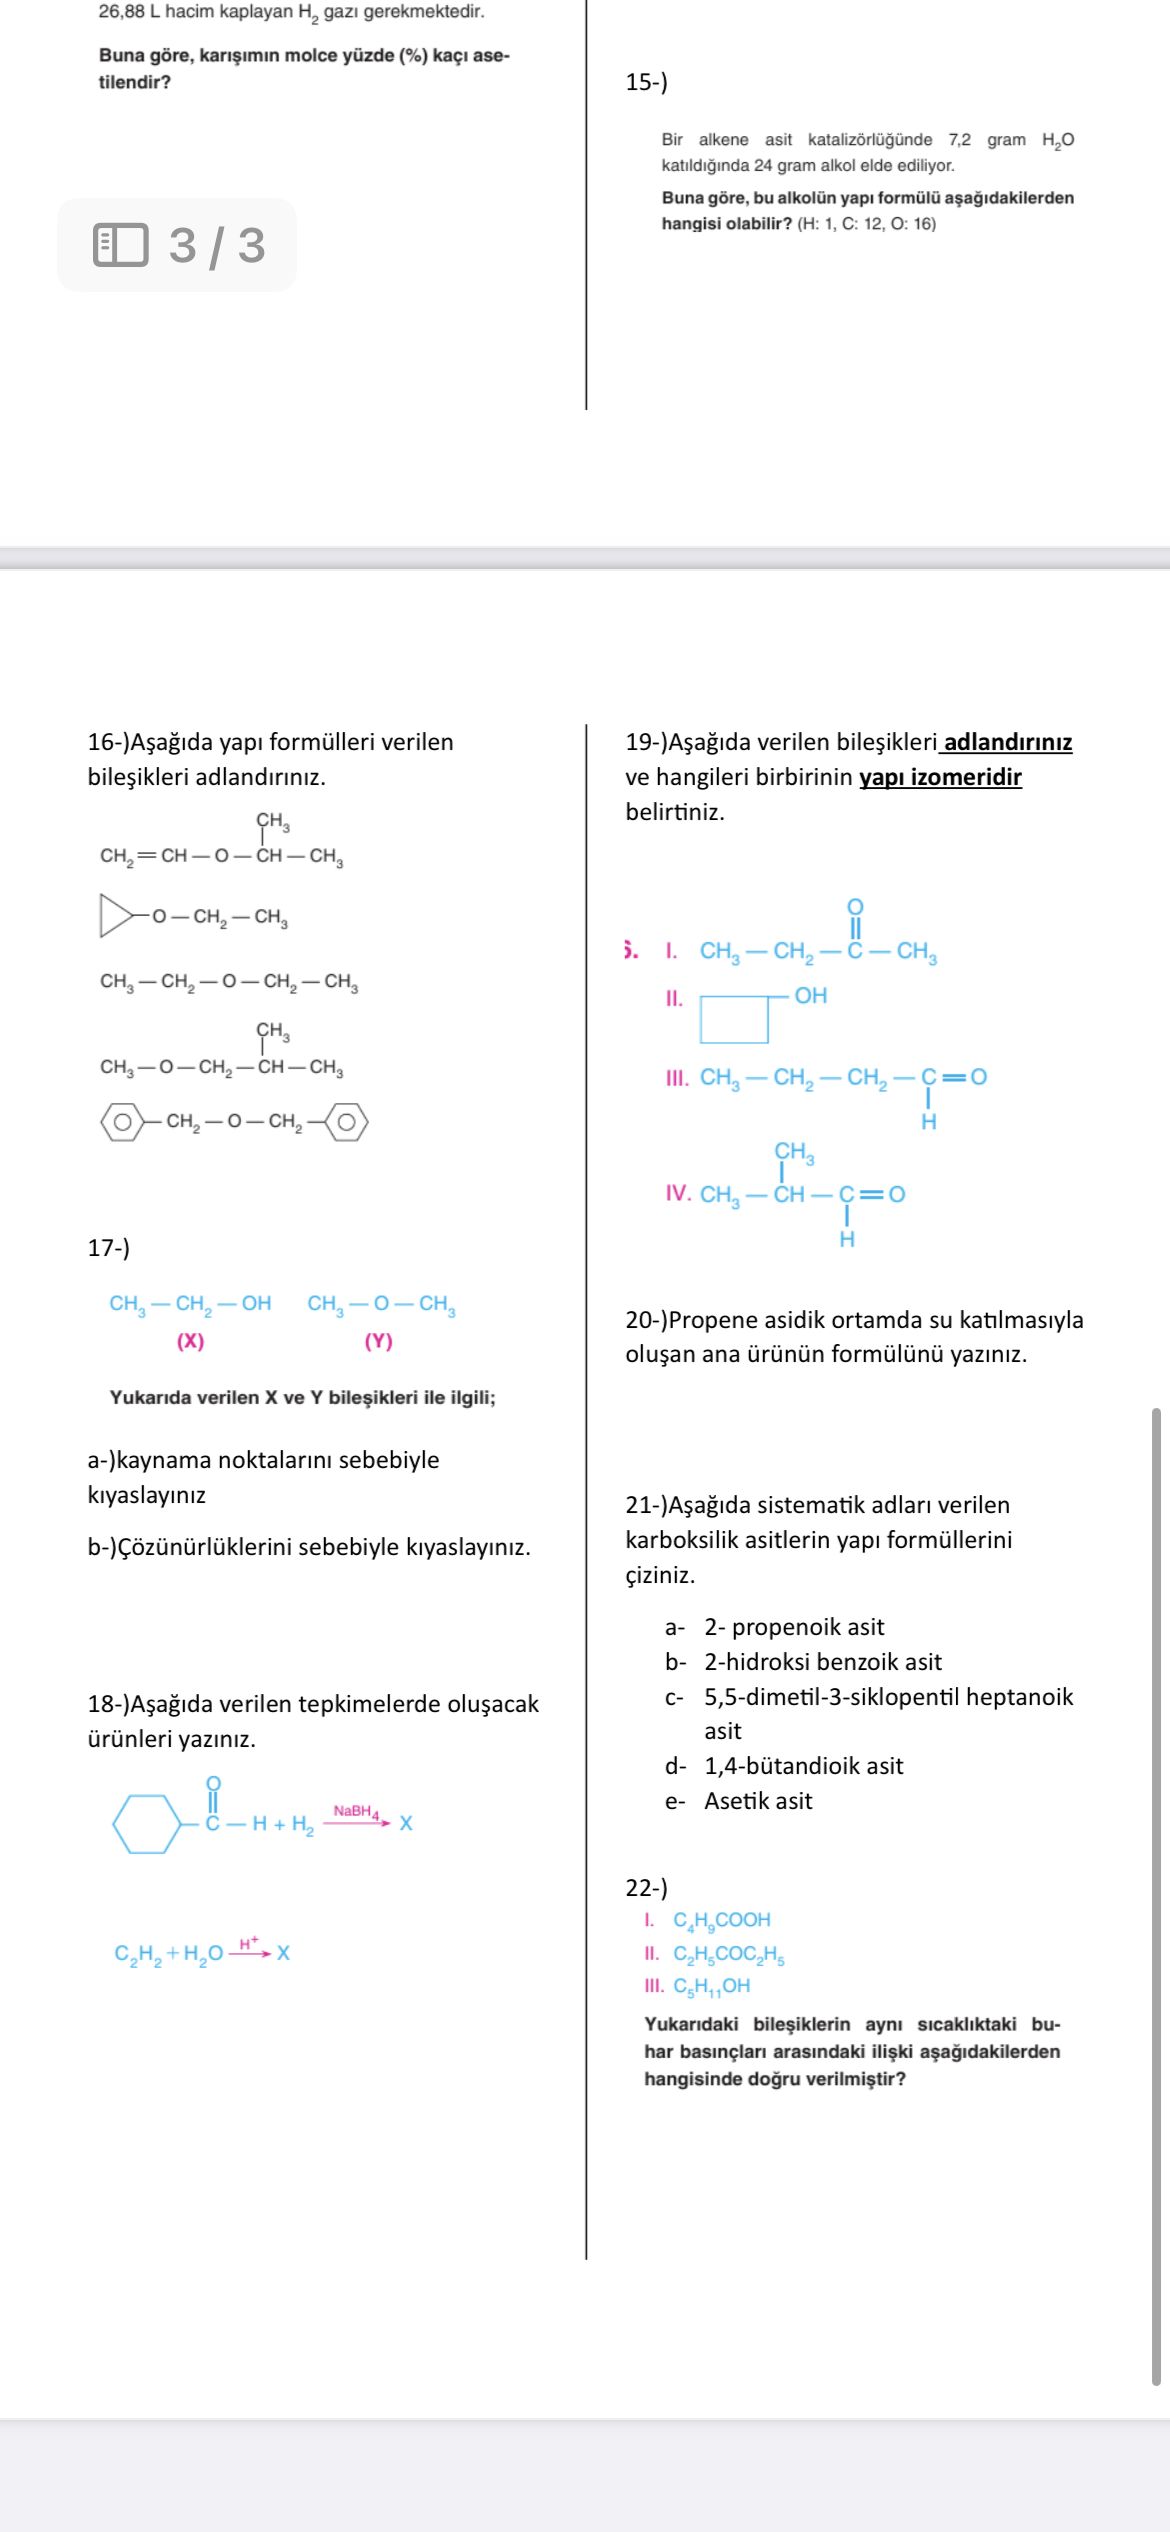 26,88 L hacim kaplayan H₂ gazı gerekmektedir.
Buna göre, karışımın molce yüzde (%) kaçı ase-
tilendir?
3 / 3
15-)
Bir alkene asit katalizörlüğünde 7,2 gram H₂O
katıldığında 24 gram alkol elde ediliyor.
Buna göre, bu alkolün yapı formülü aşağıdakilerden
hangisi olabilir? (H: 1, C: 12, O: 16)
16-)Aşağıda yapı formülleri verilen
bileşikleri adlandırınız.
CH₃
CH₂ = CH — O — CH — CH₃
O — CH₂ — CH₃
CH₃ — CH₂ — O — CH₂ — CH₃
CH₃
CH₃ — O — CH₂ — CH — CH₃
CH₂ — O — CH₂
17-)
CH₃ — CH₂ — OH CH₃ — O — CH₃
(X) (Y)
Yukarıda verilen X ve Y bileşikleri ile ilgili;
a-)kaynama noktalarını sebebiyle
kıyaslayınız
b-)Çözünürlüklerini sebebiyle kıyaslayınız.
18-)Aşağıda verilen tepkimelerde oluşacak
ürünleri yazınız.
O
C — H + H₂ NaBH₄ X
C₂H₂ + H₂O H⁺ X
19-)Aşağıda verilen bileşikleri adlandırınız
ve hangileri birbirinin yapı izomeridir
belirtiniz.
O
I. CH₃ — CH₂ — C — CH₃
II. OH
III. CH₃ — CH₂ — CH₂ — C = O
H
CH₃
IV. CH₃ — CH — C = O
H
20-)Propene asidik ortamda su katılmasıyla
oluşan ana ürünün formülünü yazınız.
21-)Aşağıda sistematik adları verilen
karboksilik asitlerin yapı formüllerini
çiziniz.
a- 2- propenoik asit
b- 2-hidroksi benzoik asit
c- 5,5-dimetil-3-siklopentil heptanoik
asit
d- 1,4-bütandioik asit
e- Asetik asit
22-)
I. C₄H₉COOH
II. C₂H₅COC₂H₅
III. C₅H₁₁OH
Yukarıdaki bileşiklerin aynı sıcaklıktaki bu-
har basınçları arasındaki ilişki aşağıdakilerden
hangisinde doğru verilmiştir?